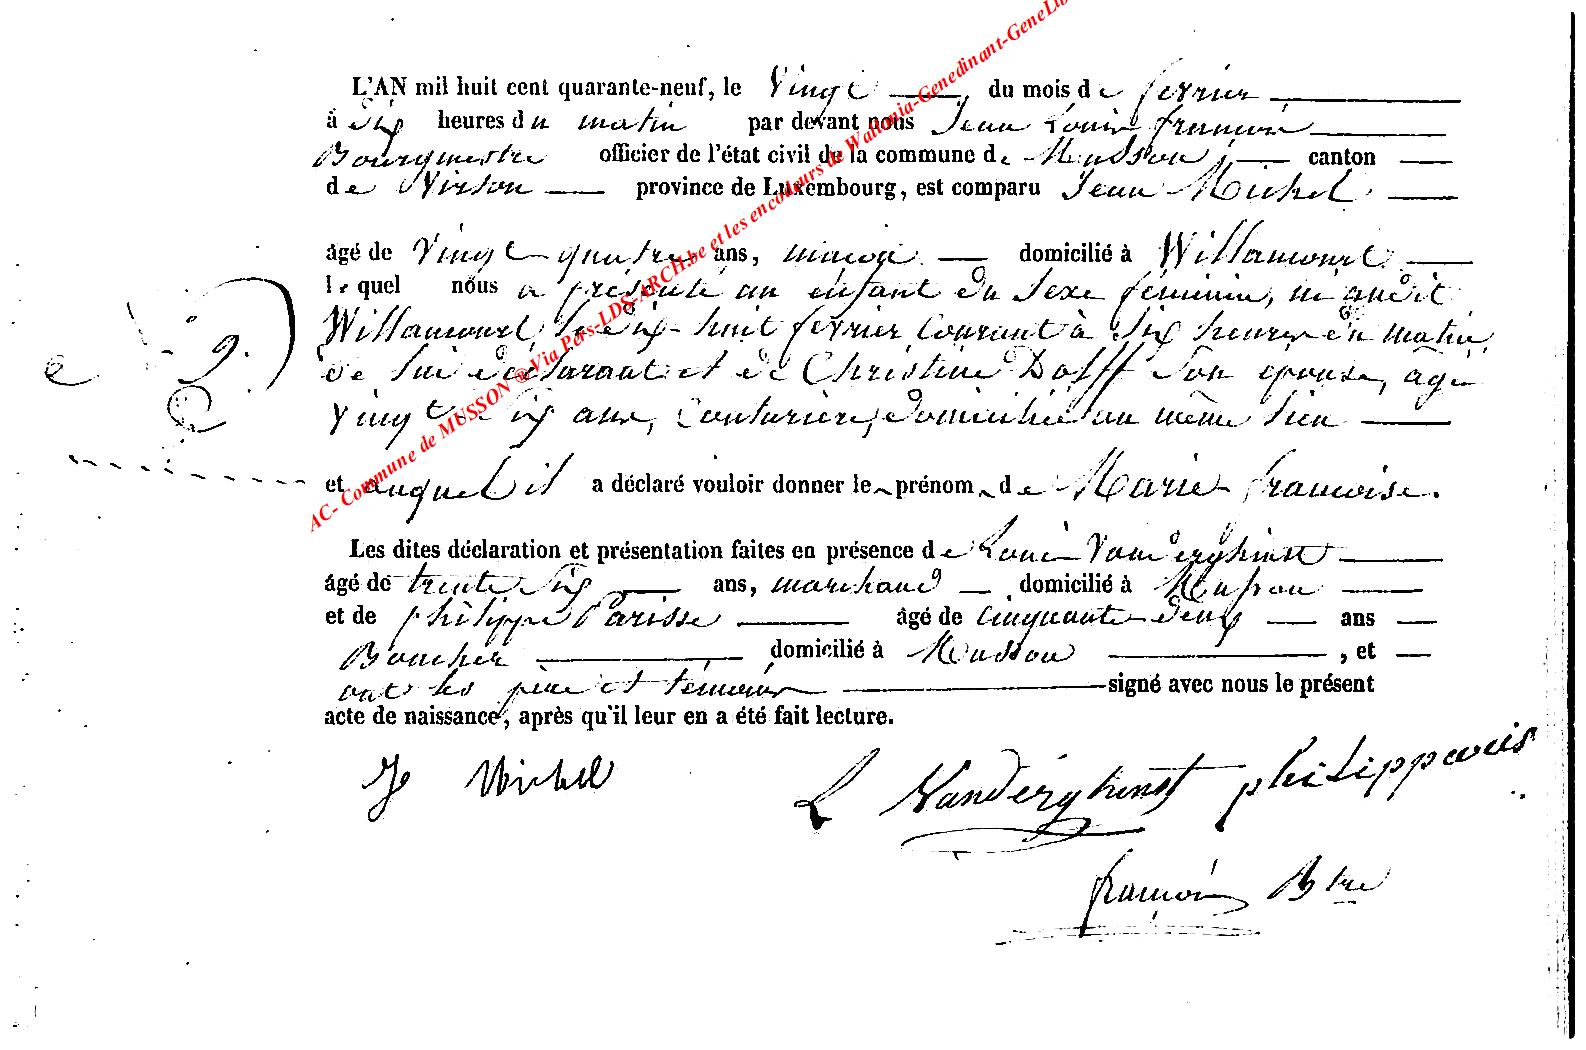 L'AN mil huit cent quarante-neuf, le Vingt du mois de fevrier
à dix heures du matin par devant nous Jean Louis françois
Bourgmestre officier de l'état civil de la commune de Musson, canton
de Virton province de Luxembourg, est comparu Jean Michel
âgé de Vingt quatre ans, domicilié à Willancourt
lequel nous a présenté un enfant du Sexe féminin, né audit
Willancourt, le dix-huit fevrier courant à Six heures du matin,
de lui déclarant et de Christine Dolff Son épouse, agée
Vingt Six ans, Couturière, domiciliée au même lieu
9.
et auquel il a déclaré vouloir donner les prénoms de Marie françoise.
Les dites déclaration et présentation faites en présence de Louis Vanderghinst
âgé de trente Six ans, marchand domicilié à Musson
et de philippe Parisse âgé de cinquante deux ans
Boucher domicilié à Musson, et
ont les père et témoins signé avec nous le présent
acte de naissance, après qu'il leur en a été fait lecture.
J Michel
L Vanderghinst philippparis
françois Btre
AC- Commune de MUSSON @ Via Pers-LDS-ARCH.be et les encodeurs de Wallonia-Genedinant-GeneLux